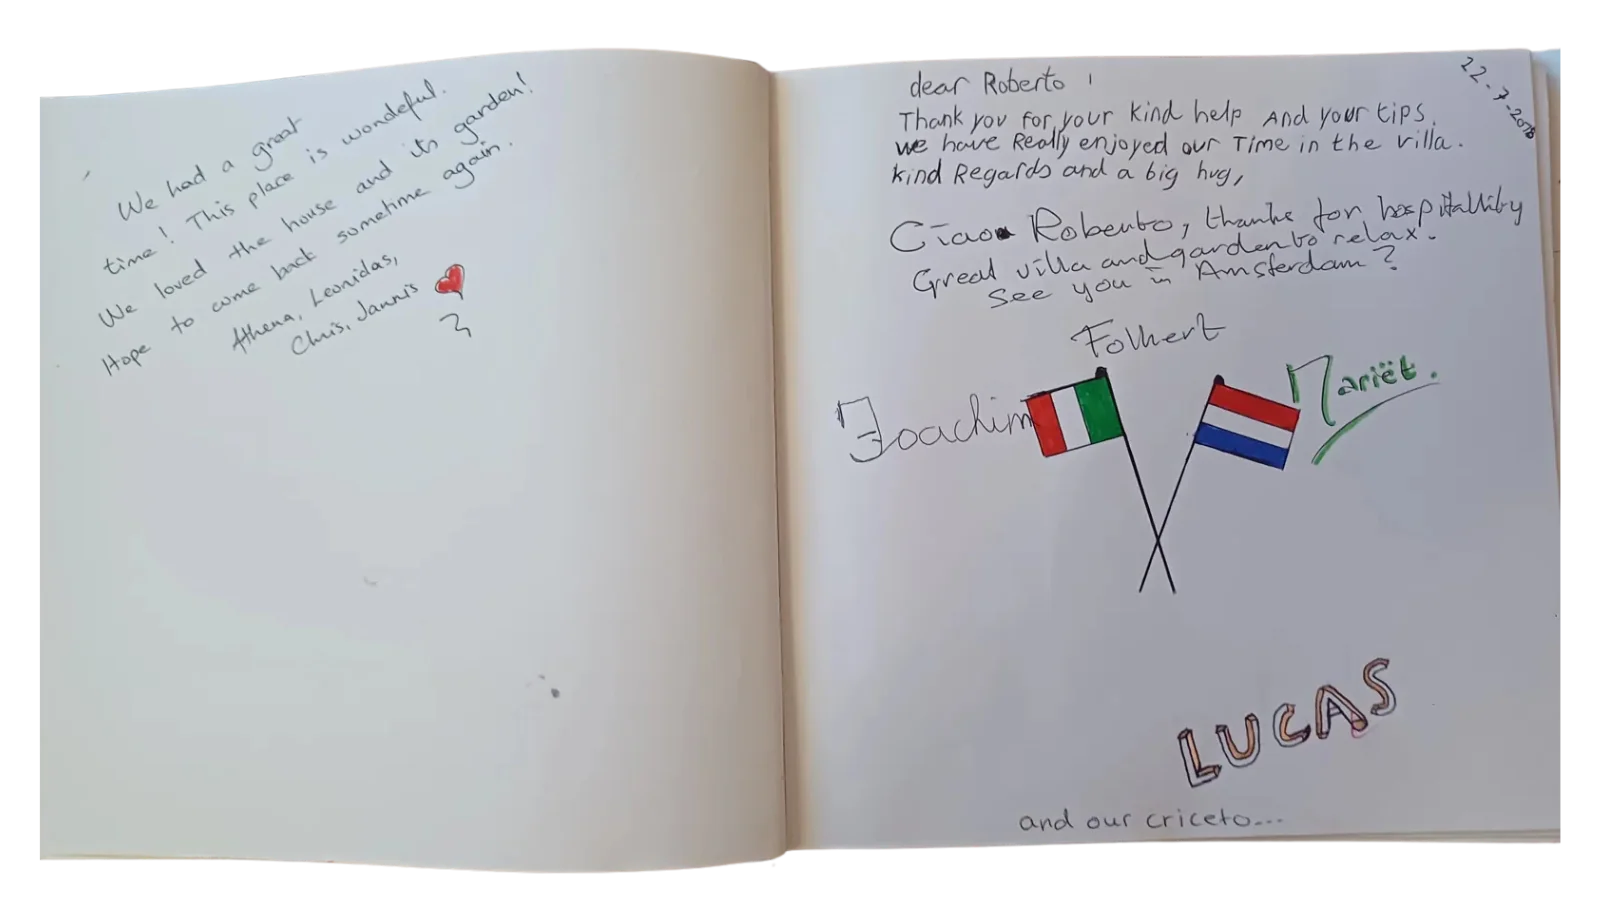 We had a great
time! This place is wondeful.
We loved the house and its garden!
Hope to come back sometime again.
Athena, Leonidas,
Chris, Jannis
22-7-2018
dear Roberto !
Thank you for your kind help And your tips.
we have Really enjoyed our Time in the villa.
kind Regards and a big hug,
Ciao Roberto, thanks for hospitallity
Great villa and garden to relax.
See you in Amsterdam?
Folkert
Joachim
Mariët.
LUCAS
and our criceto...